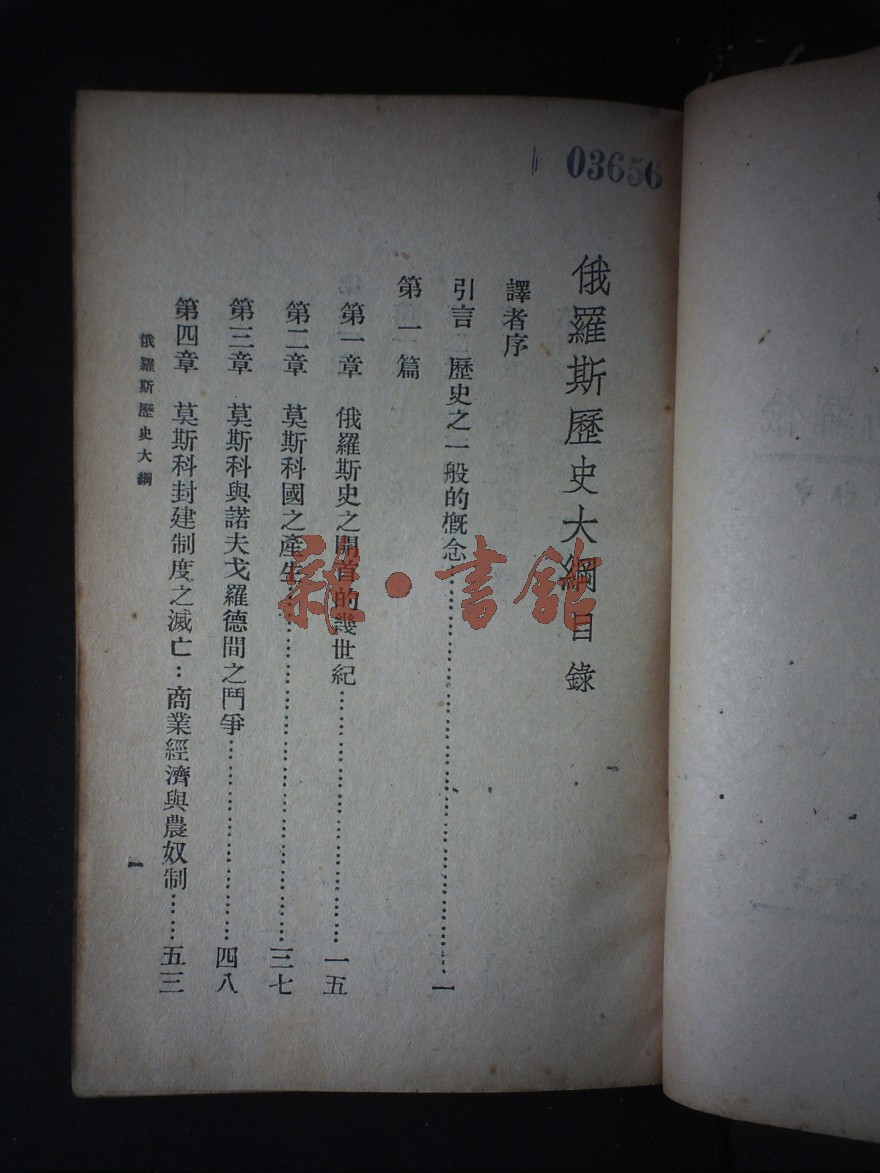 03656
俄羅斯歷史大綱目錄
譯者序
引言 歷史之一般的槪念……………………………………一
第一篇
第一章 俄羅斯史之開首的幾世紀……………………一五
第二章 莫斯科國之產生……………………………三七
第三章 莫斯科與諾夫戈羅德間之鬥爭…………………四八
第四章 莫斯科封建制度之滅亡：商業經濟與農奴制……五三
俄羅斯歷史大綱
一
雜·書館